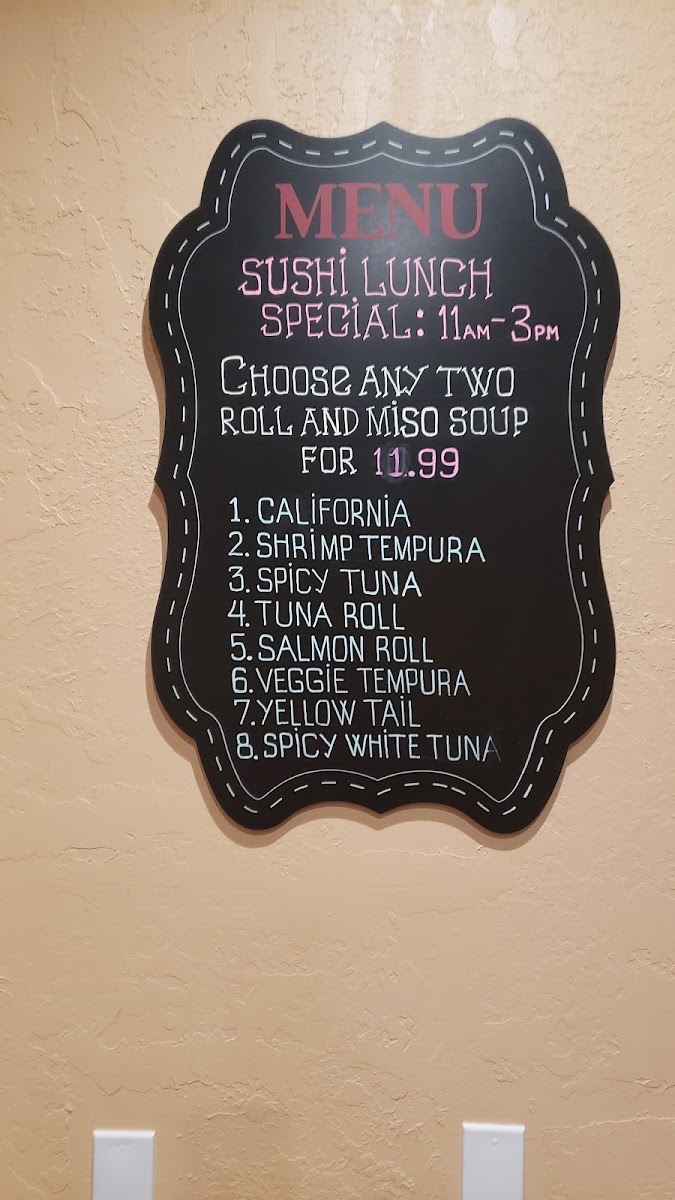 MENU
SUSHI LUNCH
SPECIAL: 11AM-3PM
CHOOSE ANY TWO
ROLL AND MISO SOUP
FOR 11.99
1. CALIFORNIA
2. SHRIMP TEMPURA
3. SPICY TUNA
4. TUNA ROLL
5. SALMON ROLL
6. VEGGIE TEMPURA
7. YELLOW TAIL
8. SPICY WHITE TUNA